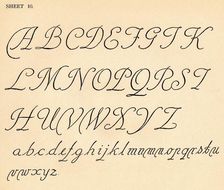 SHEET 10.
ABCDEFGIK
LMNOPQRST
HUVWXYZ
abcdefghijklmnopqrstu
vwxyz.